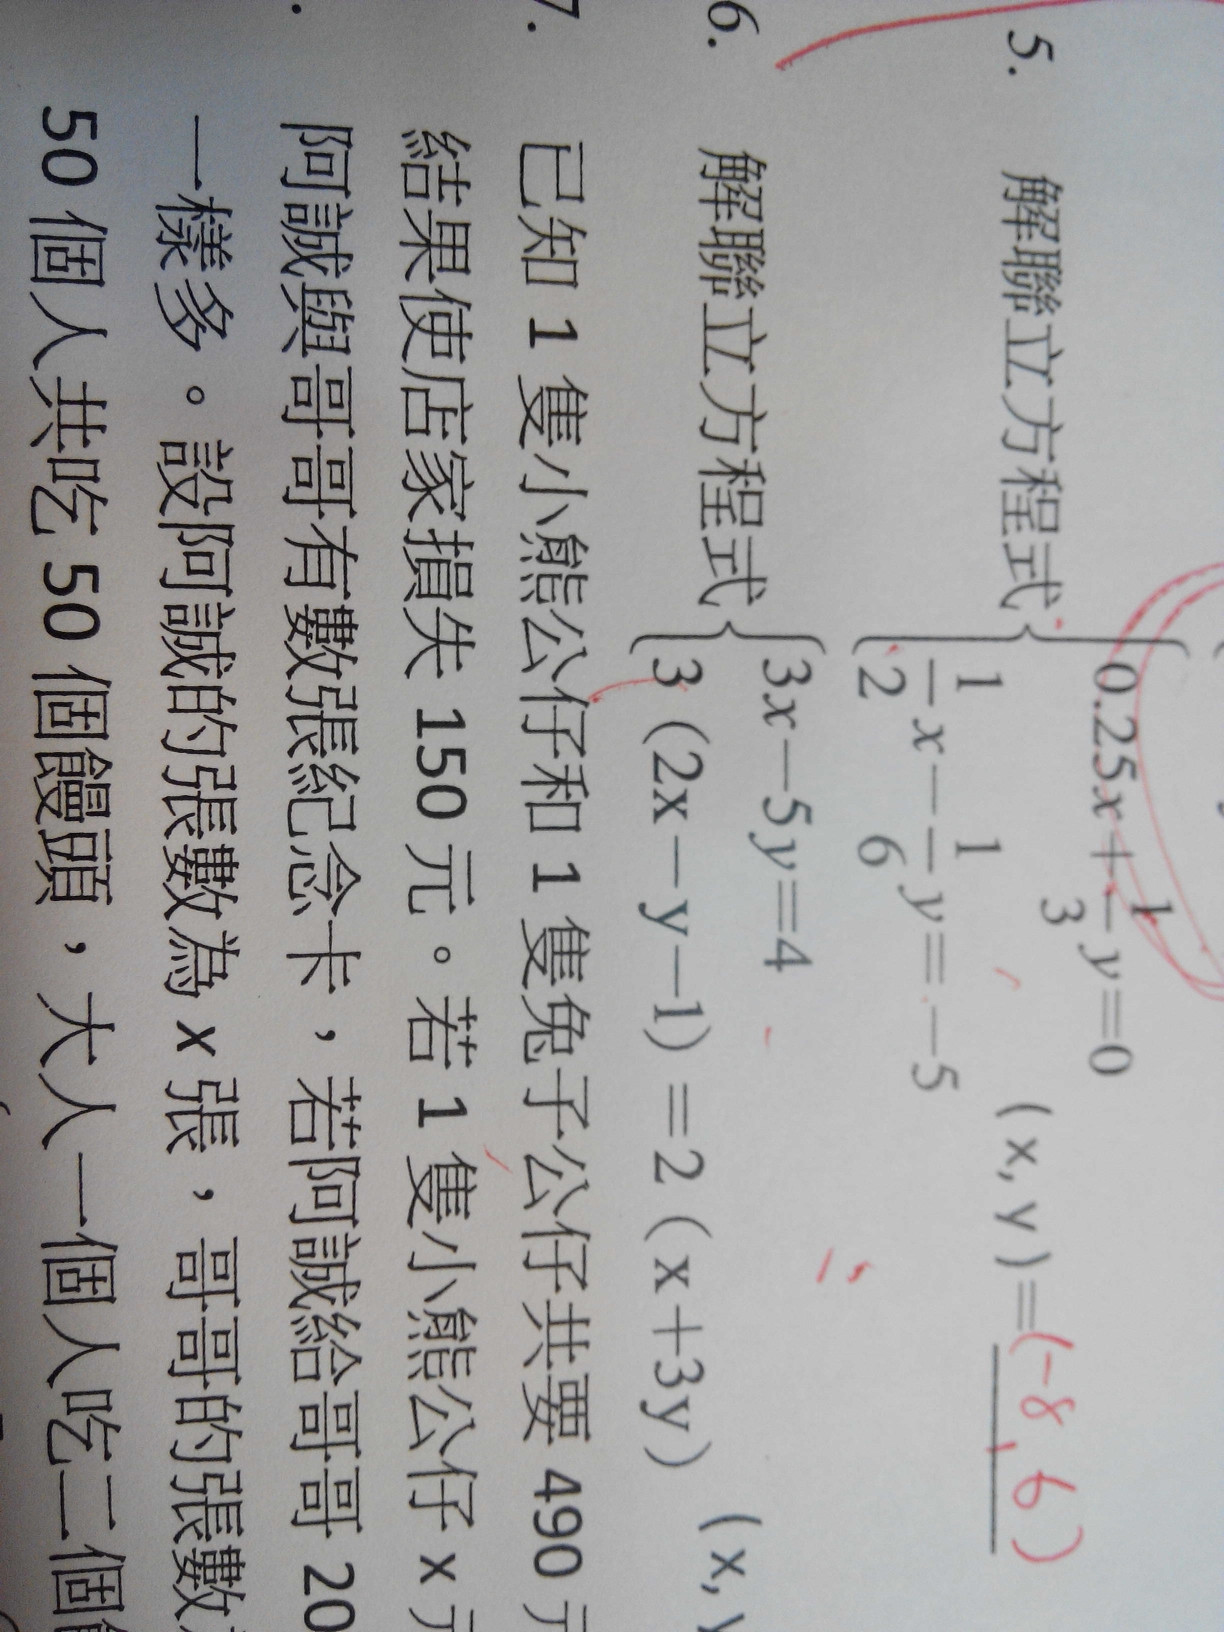 5. 解聯立方程式 { 0.25x+1/3 y=0
1/2 x−1/6 y=−5 (x, y)=(-8, 6)
6. 解聯立方程式 { 3x−5y=4
3 (2x−y−1) =2 (x+3y) (x,
7. 已知 1 隻小熊公仔和 1 隻兔子公仔共要 490
結果使店家損失 150 元。若 1 隻小熊公仔 x
阿誠與哥哥有數張紀念卡，若阿誠給哥哥 20
一樣多。設阿誠的張數為 x 張，哥哥的張數
50 個人共吃 50 個饅頭，大人一個人吃二個